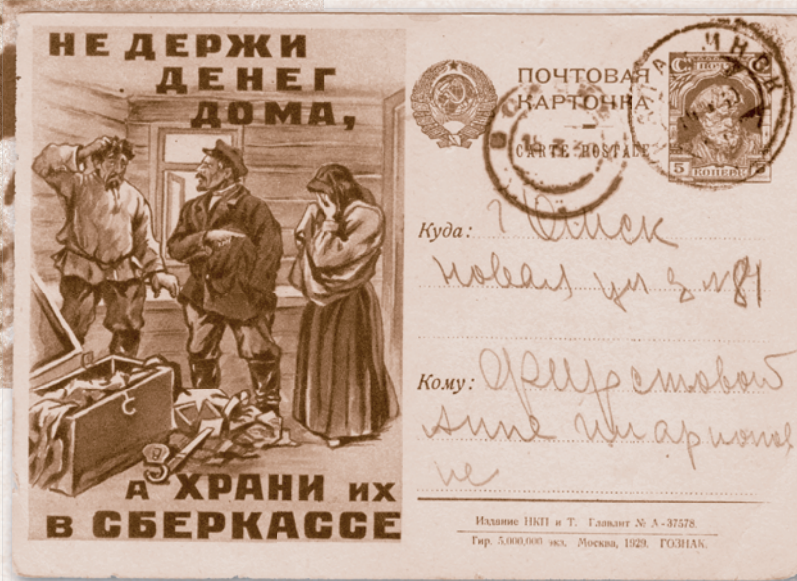 НЕ ДЕРЖИ
ДЕНЕГ
ДОМА,
А ХРАНИ ИХ
В СБЕРКАССЕ
ПОЧТОВАЯ
КАРТОЧКА
CARTE POSTALE
5 КОПЕЕК
Куда: г Омск
новая ул 84
Кому:
Анне Иларионов
не
Издание НКП и Т. Главлит № А-37578.
Тир. 5,000,000 экз. Москва, 1929. ГОЗНАК.